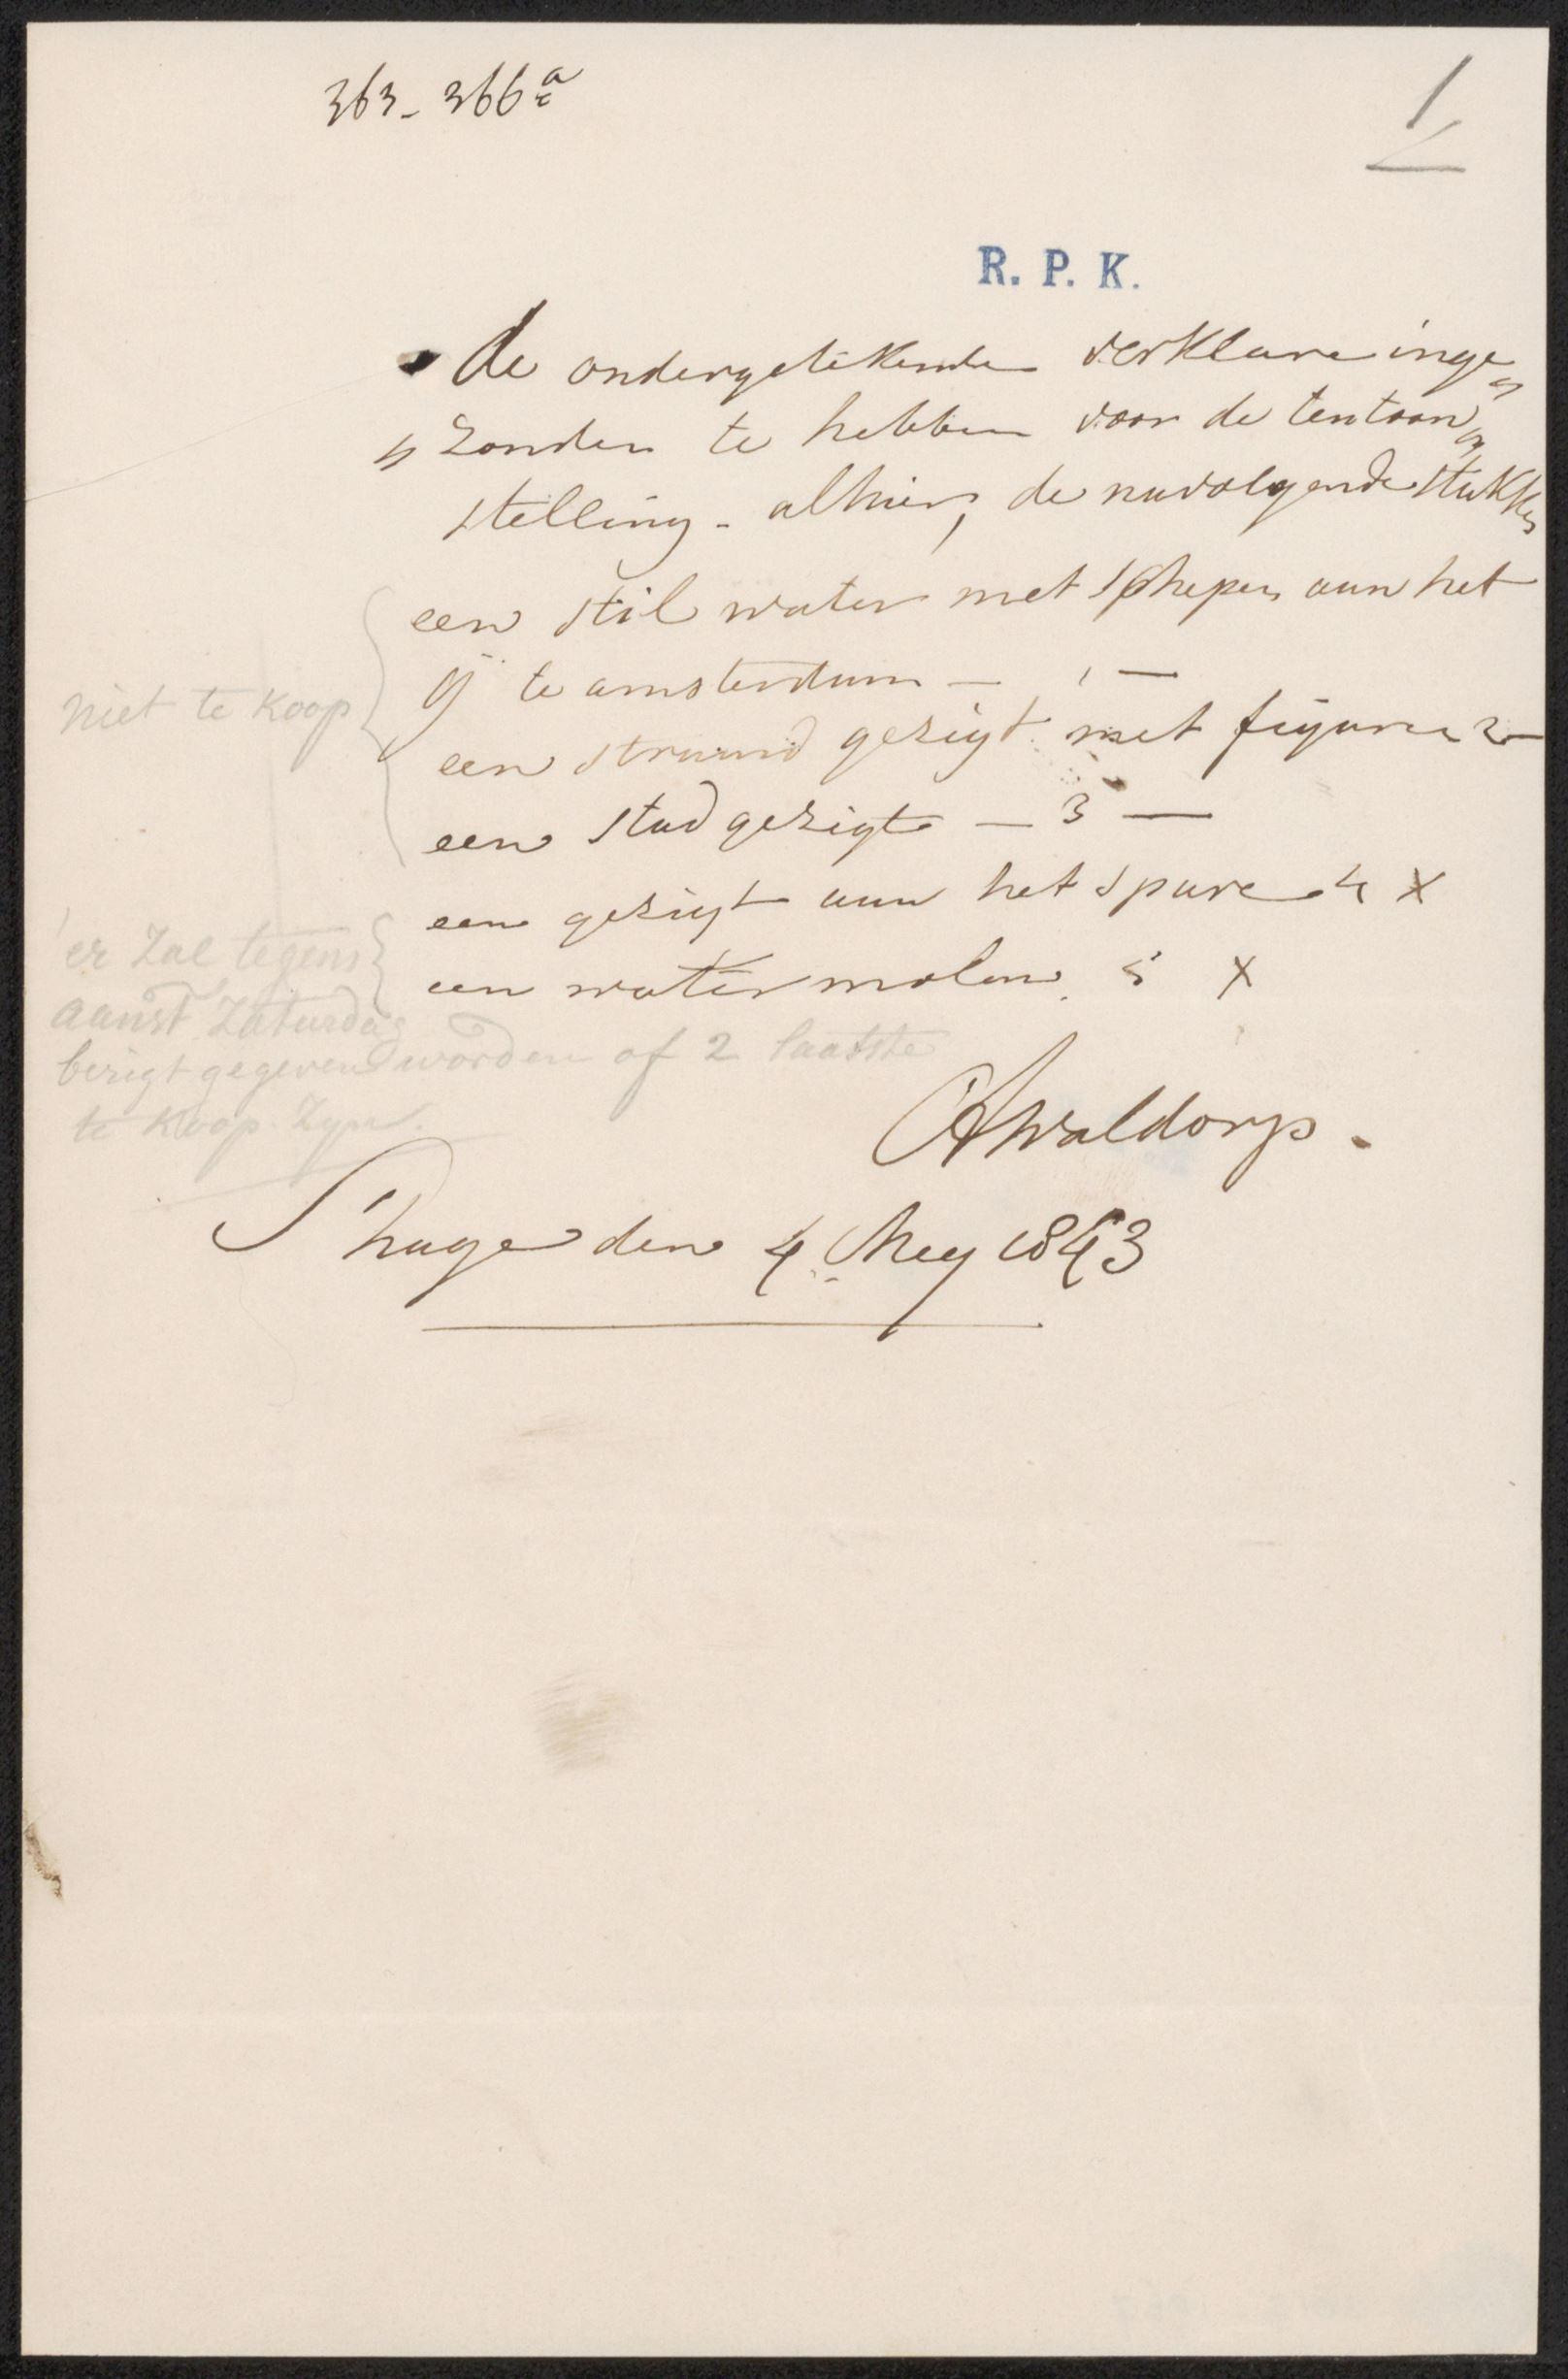 363 - 366 a
1
R. P. K.
de ondergetekende verklare inge„
„zonden te hebben voor de tentoon„
stelling - alhier, de navolgende stukke
een stil water met schepen aan het
ij te amsterdam - 1 -
niet te koop
een strand gezigt met figuren 2 -
een stad gezigt - 3 -
een gezigt aan het spare 4 x
een water molen. 5 x
er zal tegens
aanst. Zaturdag
berigt gegeven worden of 2 laatste
te koop zyn.
A Waldorp.
S'hage den 4 Mey 1843